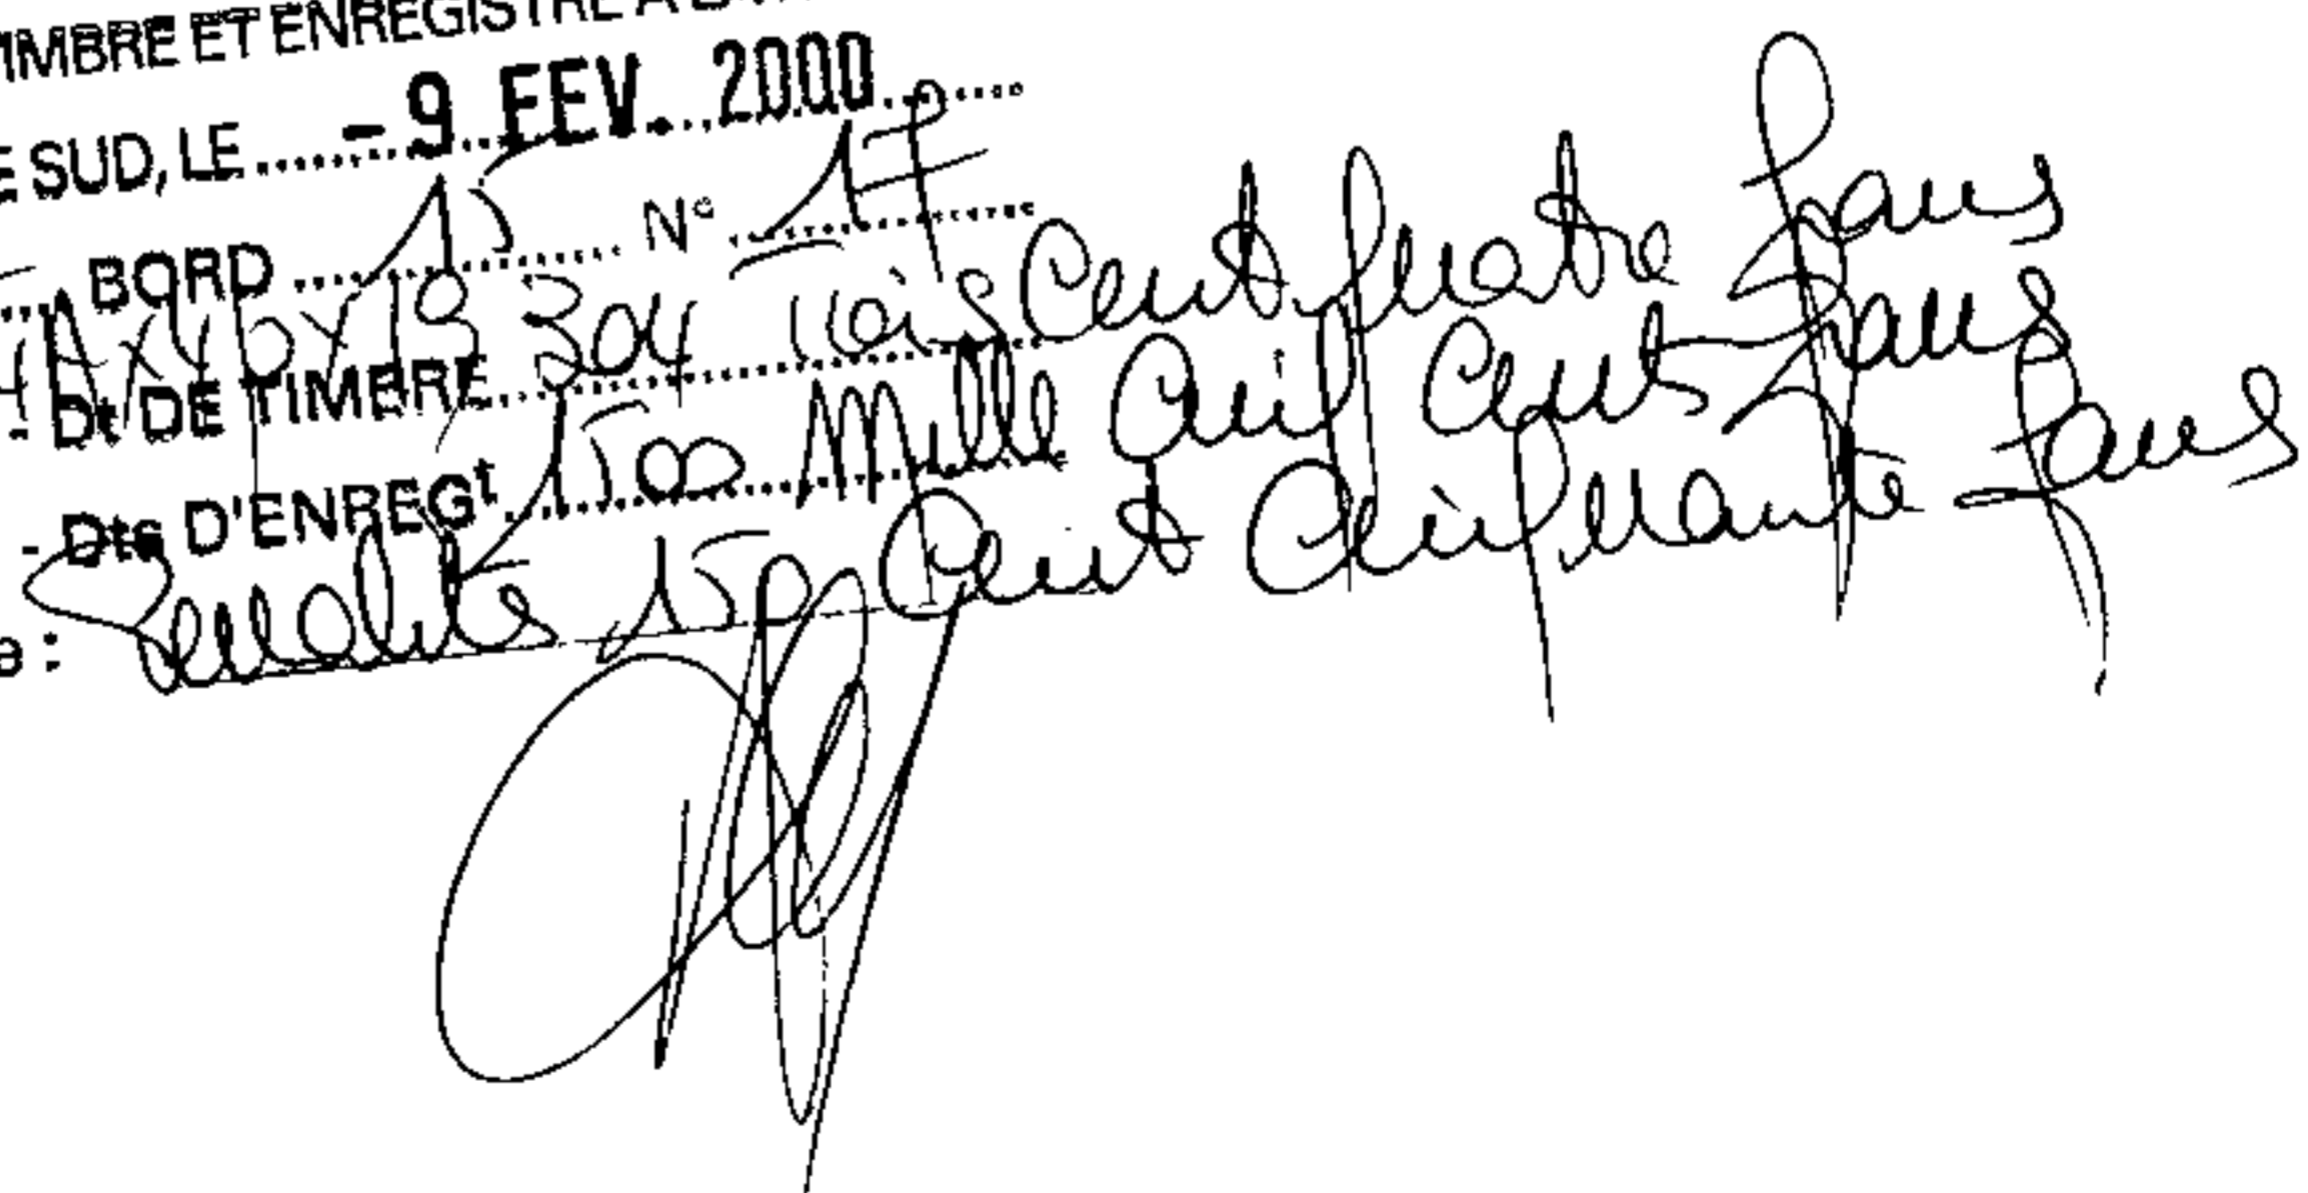 TIMBRE ET ENREGISTRE A
E SUD, LE - 9 FEV. 2000
BORD 15 N° 17
- Dt DE TIMBRE 304 Trois Cent quatre francs
- Dts D'ENREGt 1500 Mille Cinq Cents francs
e : Pénalités 150 Cent Cinquante francs